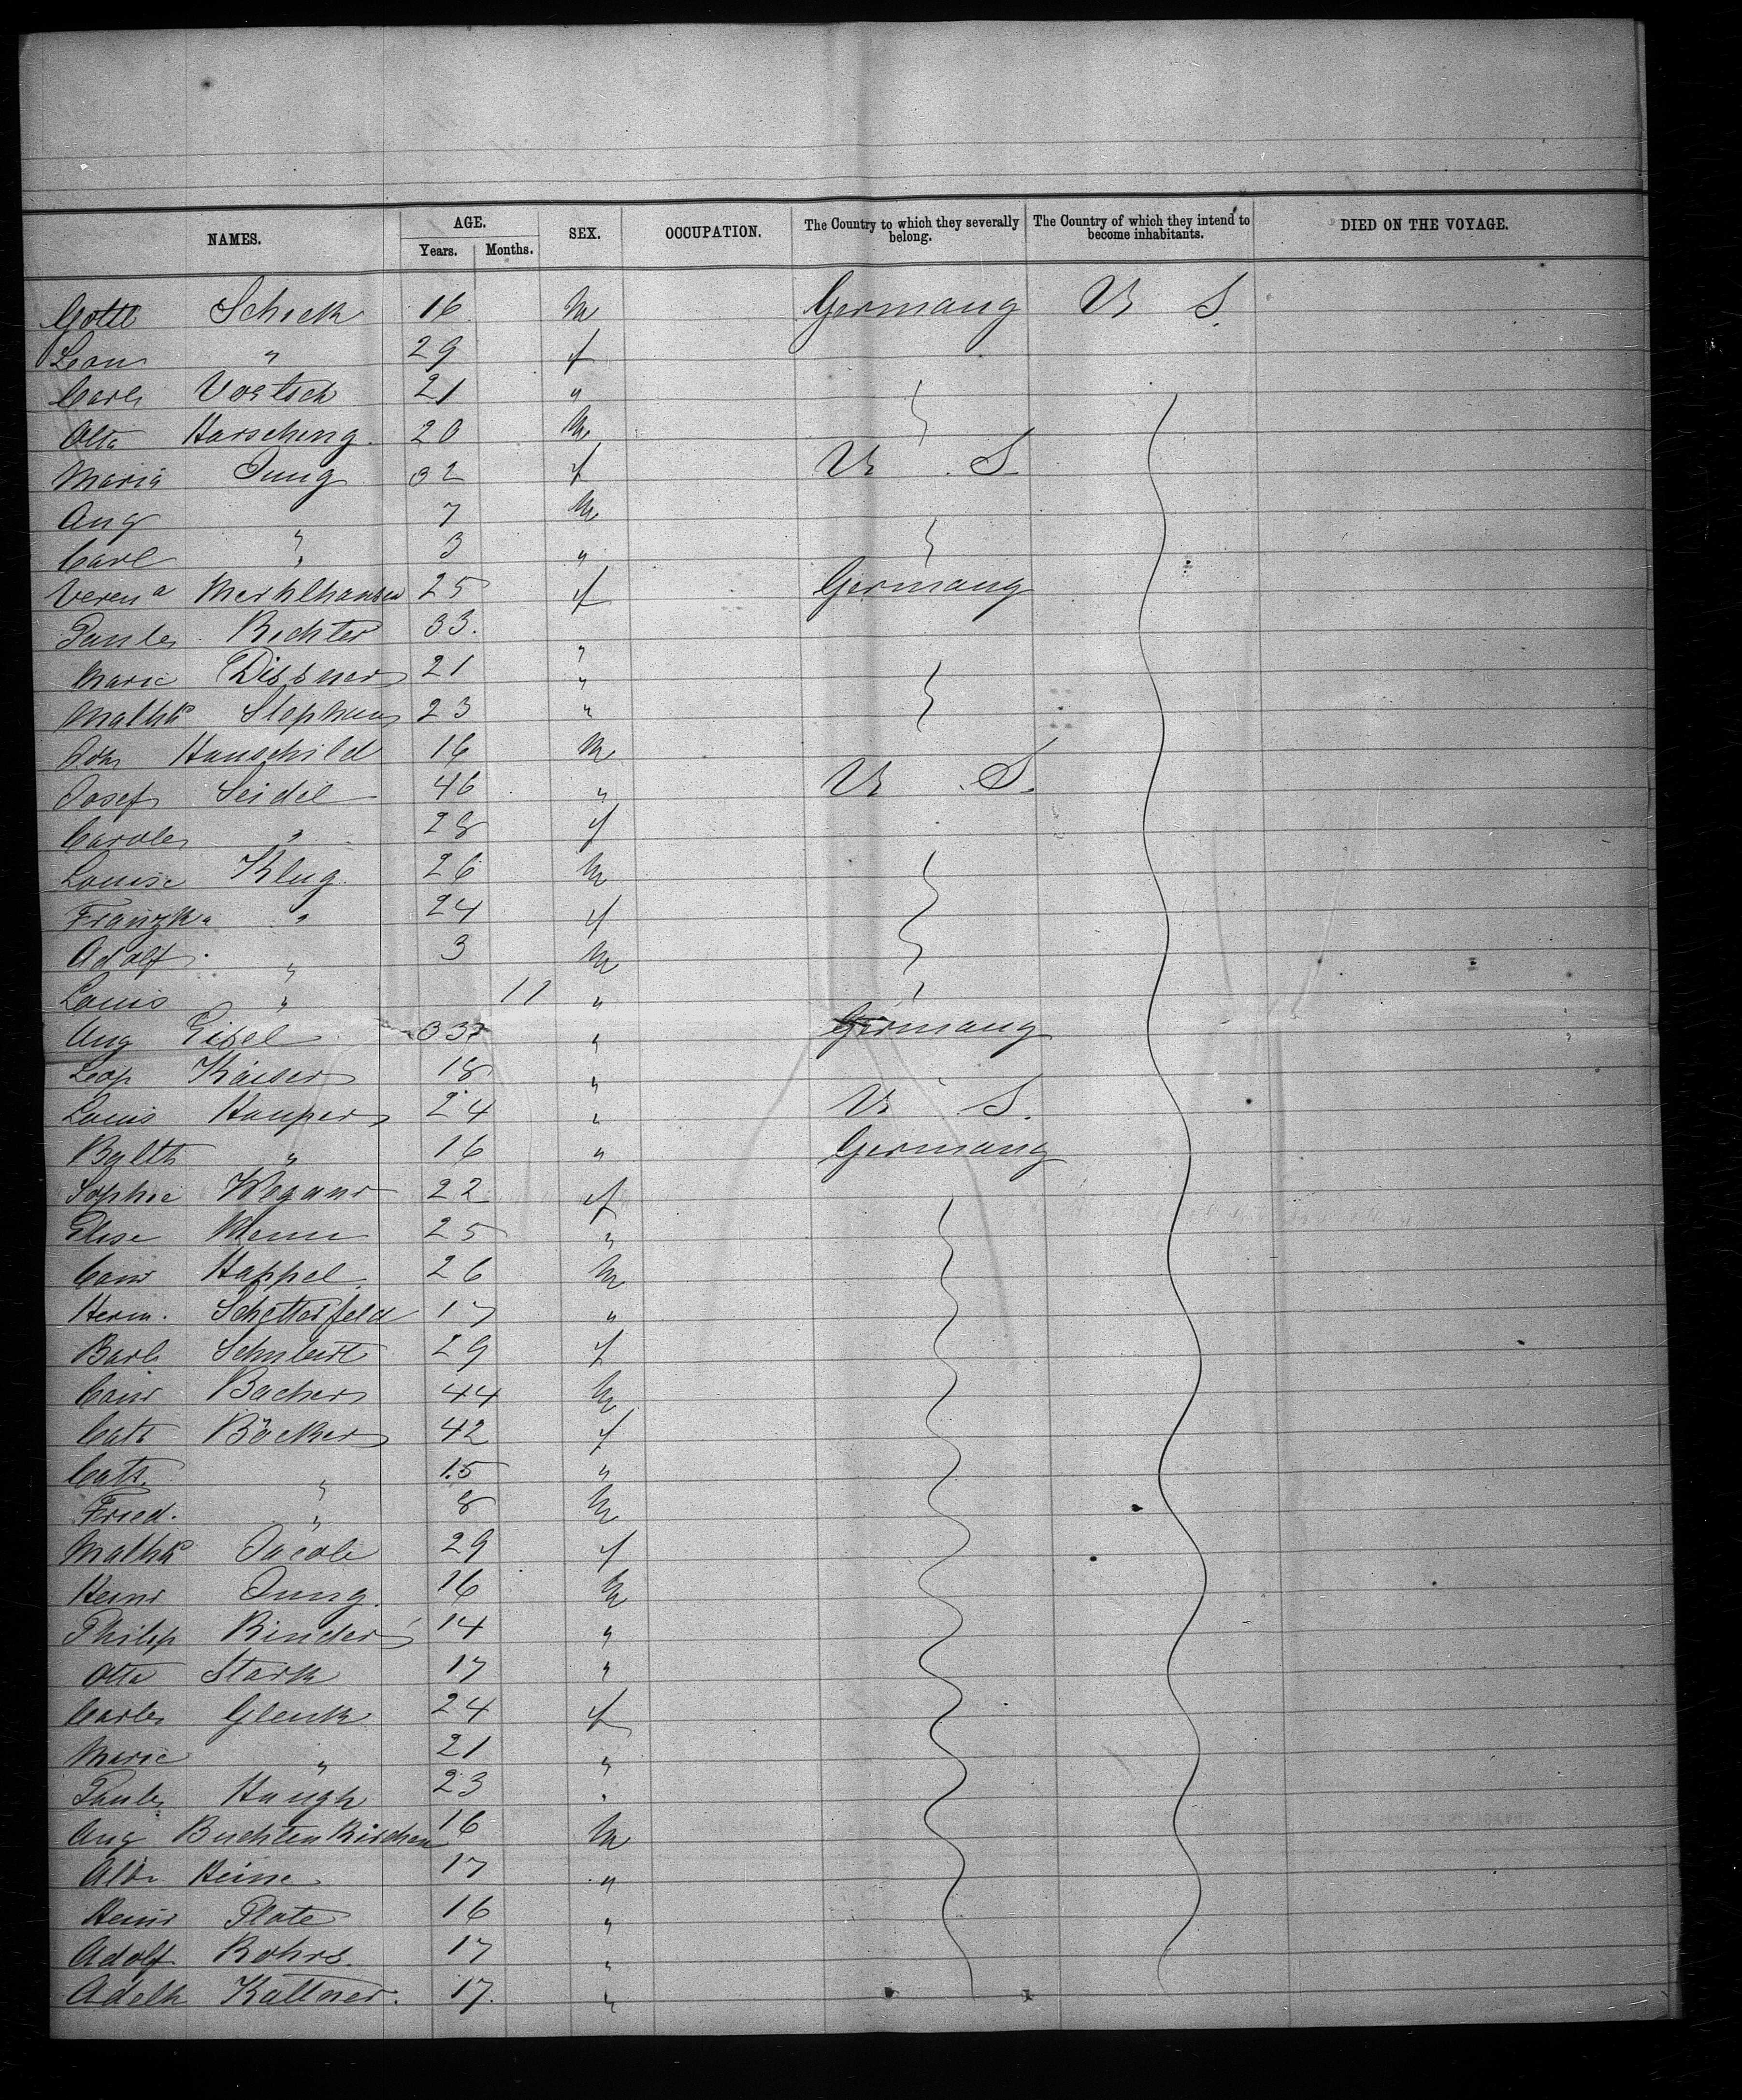 NAMES. AGE. SEX. OCCUPATION. The Country to which they severally belong. The Country of which they intend to become inhabitants. DIED ON THE VOYAGE.
Years. Months.
Gottl Schick 16 m Germany U S.
29 f
Voetsch 21 "
Otto Harscheng. 20 m
Maria Jung 32 f U. S.
Aug " 7 m
Carl " 3 "
Verena Merklhausen 25 f Germany
Richter 33. "
Marie Dissner 21 "
Stephan 23 "
Hauschild 16 m
Josef Seidel 46 " U. S.
" 28 f
Louise Klug. 26 m
Franzka " 24 f
Adolf. " 3 m
Louis " 11 "
Aug Eisel " Germany
Leop Kaiser 18 "
Louis Hauper 24 " U. S.
Balth " 16 " Germany
Sophie 22 f
Elise 25 "
Happel. 26 m
Herm. Schetterfeld 17 "
Barb Schubert 29 f
Bacher 44 m
Cath Böcker 42 f
Cath. " 15 "
Fried. " 8 m
Jacob 29 f
Heinr Jung. 16 m
Philip Binder 14 "
Otto Stark 17 "
Glenk 24 f
Marie " 21 "
Haugh 23 "
Aug Buchtenkirchen 16 m
Heine 17 "
Heinr Plate 16 "
Adolf Rohrs. 17 "
Adelh Kattner. 17. "